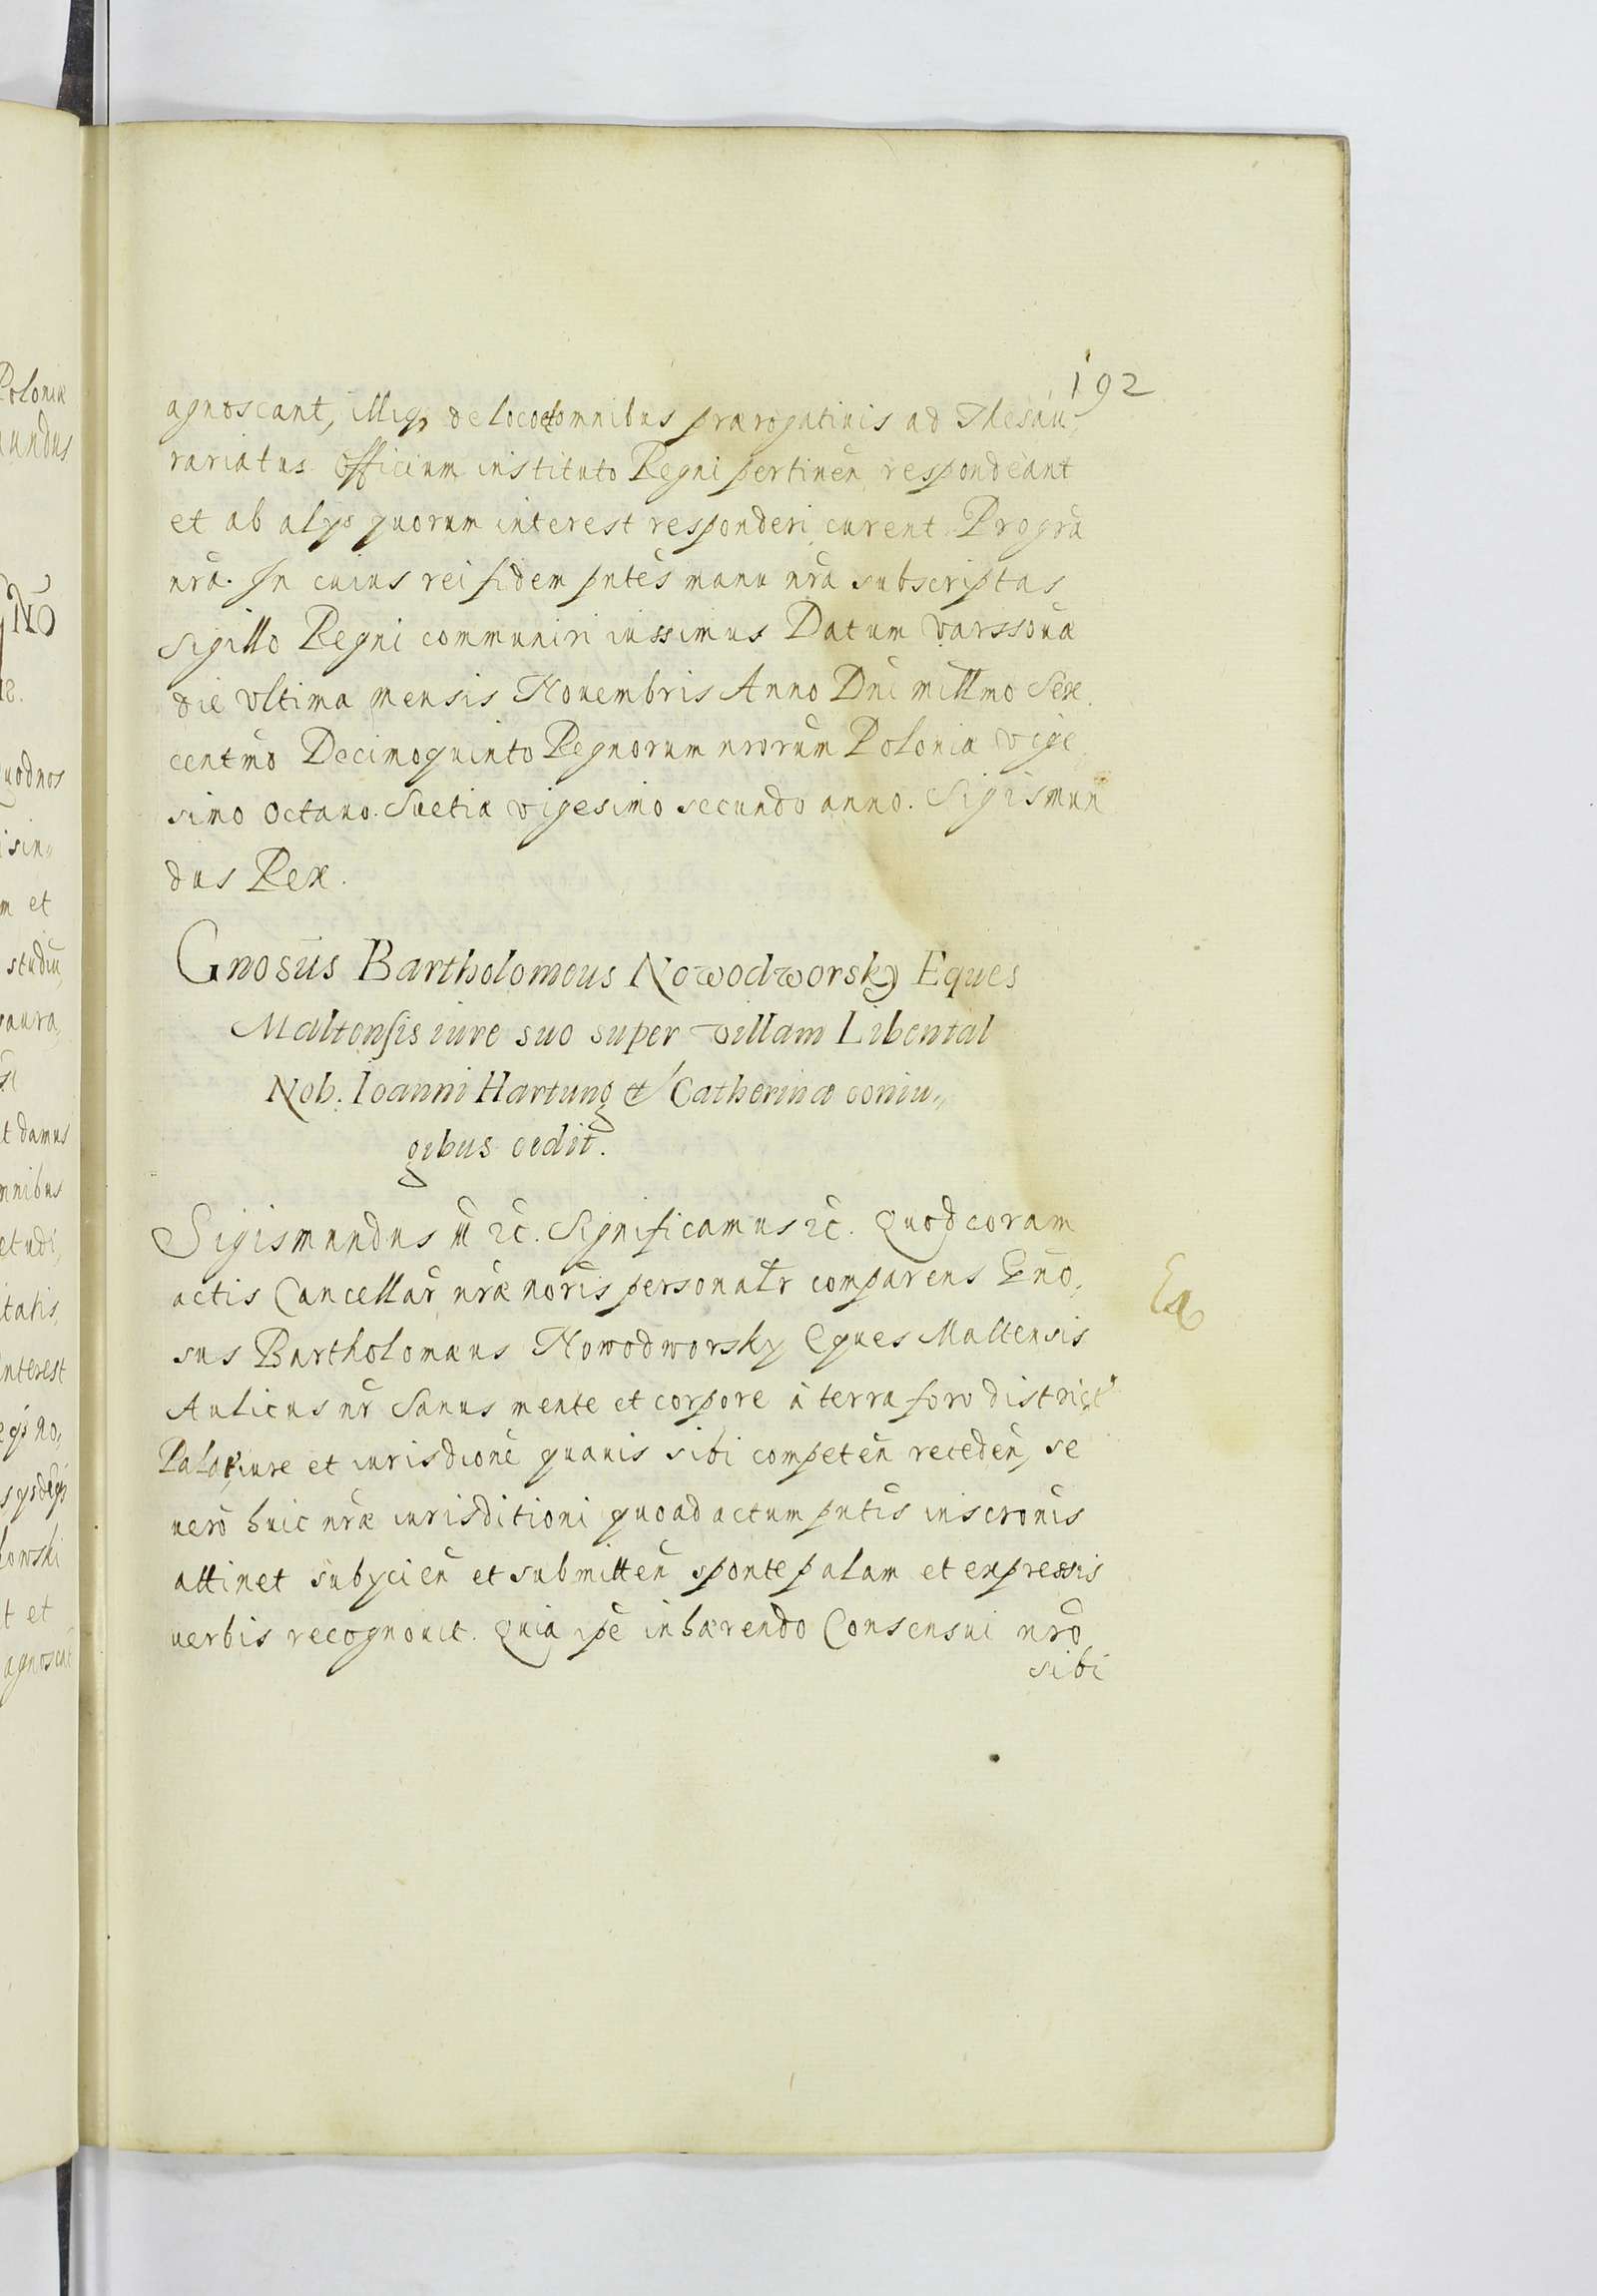 192
agnoscant, illiq₃ de loco et omnibus prærogatiuis ad Thesau,
rariatus Officium instituto Regni pertineñ respondeant
et ab alys quorum interest responderi curent Pro gra͠
nr͠a. In cuius rei fidem pnte͠s manu nr͠a subscriptas
sigillo Regni communiri iussimus Datum Varssouæ
die Vltima mensis Nouembris Anno Dni͠ millmo Sex
centmo͠ Decimoquinto Regnorum nrorum͠ Poloniæ vige,
simo octauo. Suetiæ vigesimo secundo anno. Sigismun
dus Rex.
Gnosus͠ Bartholomeus Nowodworsky Eques
Maltensis iure suo super villam Libental
Nob. Ioanni Hartung et Catherinæ coniu„
gibus cedit.
Sigismundus iii ꝛc͠. Significamus ꝛc͠. Quod coram
actis Cancellar͠ nr͠æ noris͠ personalr͠ comparens Gno͠,
sus Bartholomæus Nowodworsky Eques Maltensis
Aulicus nr͠ Sanus mente et corpore à terra foro district
Palat, iure et iurisdione͠ quauis sibi competen͠ receden͠, se
uero͠ huic nr͠æ iurisditioni quoad actum pntis͠ inscronis͠
attinet subycien͠ et submitten͠ sponte palam et expressis
uerbis recognouit. Quia ipe͠ inhærendo Consensui nro͠
sibi